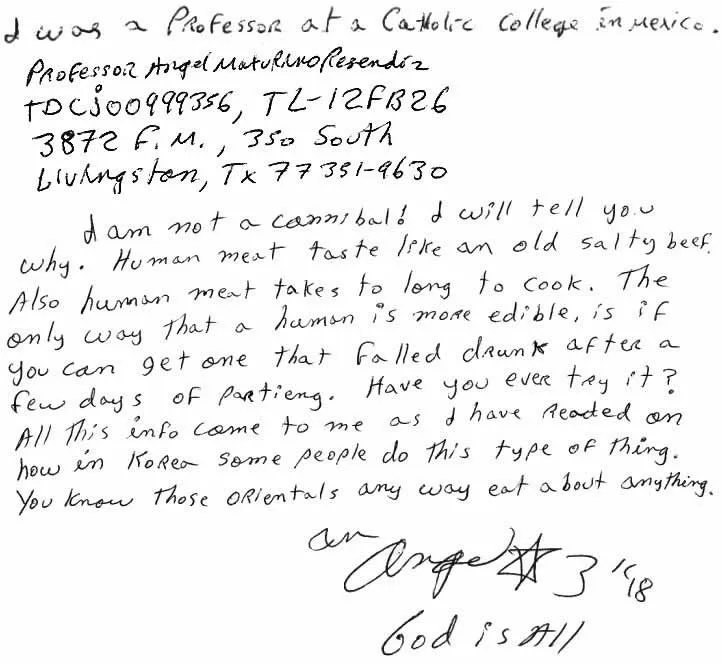 I was a Professor at a Catholic College in Mexico.
Professor Angel Maturino Resendiz
TDCJ00999356, TL-12FB26
3872 F.M., 350 South
Livingston, Tx 77351-9630
I am not a cannibal! I will tell you
why. Human meat taste like an old salty beef.
Also human meat takes to long to cook. The
only way that a human is more edible, is if
you can get one that falled drunk after a
few days of partieng. Have you ever try it?
All this info come to me as I have readed on
how in Korea some people do this type of thing.
You know those orientals any way eat about anything.
an
Angel ☆ 3 18
God is All